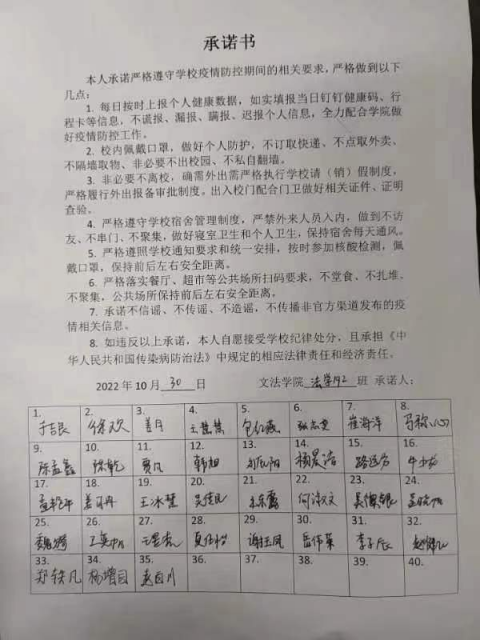 承诺书
本人承诺严格遵守学校疫情防控期间的相关要求，严格做到以下
几点：
1. 每日按时上报个人健康数据，如实填报当日钉钉健康码、行
程卡等信息，不谎报、漏报、瞒报、迟报个人信息，全力配合学院做
好疫情防控工作。
2. 校内佩戴口罩，做好个人防护，不订取快递、不点取外卖、
不隔墙取物、非必要不出校园、不私自翻墙。
3. 非必要不离校，确需外出需严格执行学校请（销）假制度，
严格履行外出报备审批制度。出入校门配合门卫做好相关证件、证明
查验。
4. 严格遵守学校宿舍管理制度，严禁外来人员入内，做到不访
友、不串门、不聚集，做好寝室卫生和个人卫生，保持宿舍每天通风。
5. 严格遵照学校通知要求和统一安排，按时参加核酸检测，佩
戴口罩，保持前后左右安全距离。
6. 严格落实餐厅、超市等公共场所扫码要求，不堂食、不扎堆、
不聚集，公共场所保持前后左右安全距离。
7. 承诺不信谣、不传谣、不造谣，不传播非官方渠道发布的疫
情相关信息。
8. 如违反以上承诺，本人自愿接受学校纪律处分，且承担《中
华人民共和国传染病防治法》中规定的相应法律责任和经济责任。
2022 年 10 月 30 日 文法学院 班 承诺人：
1. 2. 3. 4. 5. 6. 7. 8.
徐欢 姜丹 崔海洋
9. 10. 11. 12. 13. 14. 15. 16.
陈孟鑫 韩旭 杨景浩
17. 18. 19. 20. 21. 22. 23. 24.
王冰慧
25. 26. 27. 28. 29. 30. 31. 32.
33. 34. 35. 36. 37. 38. 39. 40.
郑轶凡 杨增园